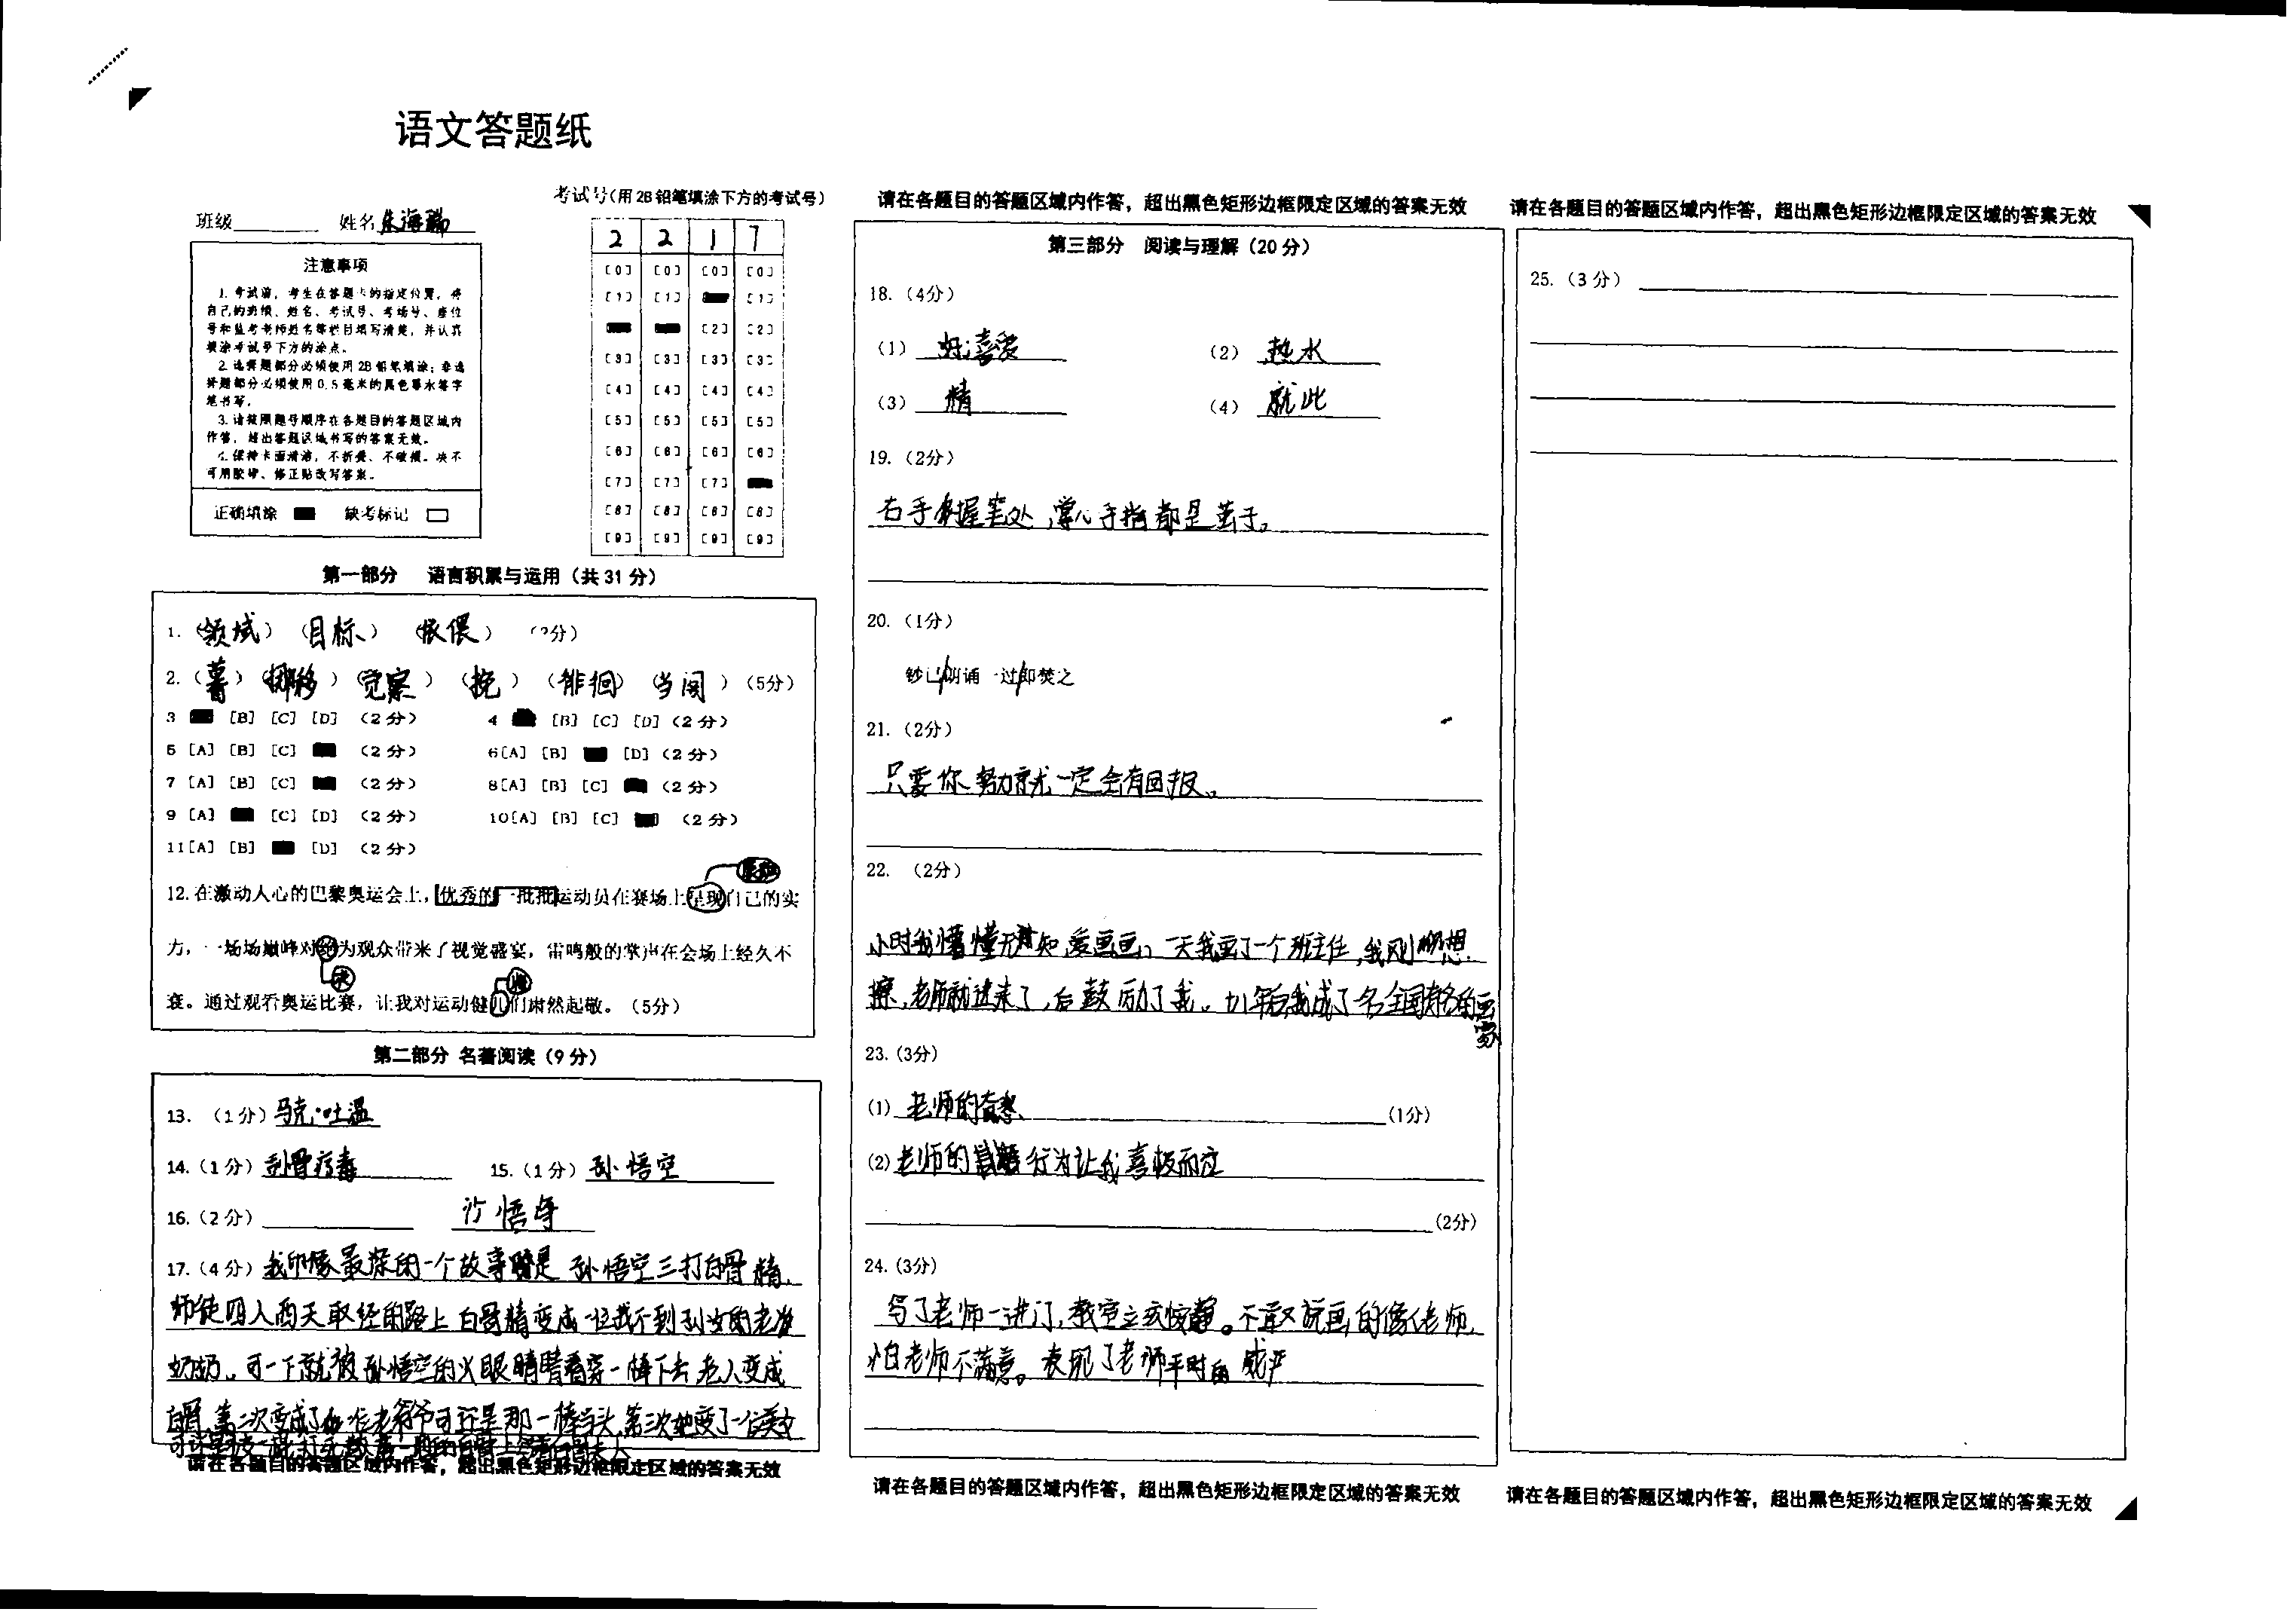 语文答题纸
班级 姓名 朱海瑞
考试号(用2B铅笔填涂下方的考试号)
2 2 1 7
[0] [0] [0] [0]
[1] [1] [1]
[2] [2]
[3] [3] [3] [3]
[4] [4] [4] [4]
[5] [5] [5] [5]
[6] [6] [6] [6]
[7] [7] [7]
[8] [8] [8] [8]
[9] [9] [9] [9]
注意事项
1.考试前，考生在答题卡的指定位置，将
自己的班级、姓名、考试号、考场号、座位
号和监考老师姓名等栏目填写清楚，并认真
填涂考试号下方的涂点。
2.选择题部分必须使用2B铅笔填涂；非选
择题部分必须使用0.5毫米的黑色墨水签字
笔书写。
3.请按照题号顺序在各题目的答题区域内
作答，超出答题区域书写的答案无效。
4.保持卡面清洁，不折叠、不破损。决不
可用胶带、修正贴改写答案。
正确填涂 缺考标记
第一部分 语言积累与运用（共31分）
1.（领域）（目标）（依偎）
2.（薯）（挪移）（觉察）（挽）（徘徊）（当阁）（5分）
3 [B] [C] [D] （2分） 4 [B] [C] [D]（2分）
5 [A] [B] [C] （2分） 6[A] [B] [D]（2分）
7 [A] [B] [C] （2分） 8[A] [B] [C] （2分）
9 [A] [C] [D] （2分） 10[A] [B] [C] （2分）
11[A] [B] [D] （2分）
12.在激动人心的巴黎奥运会上，优秀的一批批运动员在赛场上呈现自己的实
力，一场场巅峰对 为观众带来了视觉盛宴，雷鸣般的掌声在会场上经久不
决
衰。通过观看奥运比赛，让我对运动健儿们肃然起敬。（5分）
第二部分 名著阅读（9分）
13.（1分）马克·吐温
14.（1分）刮骨疗毒 15.（1分）孙悟空
16.（2分） 沙悟净
17.（4分）我印像最深的一个故事是 孙悟空三打白骨精.
师徒四人西天取经的路上白骨精变成一位找不到 的老
奶奶。可一下就被孙悟空的火眼睛睛看穿一棒下去 老人变成
白骨,第二次变成了 老爷爷可还是那一棒当头,第三次她变了一位美女
请在各题目的答题区域内作答，超出黑色矩形边框限定区域的答案无效
请在各题目的答题区域内作答，超出黑色矩形边框限定区域的答案无效
第三部分 阅读与理解（20分）
18.（4分）
（1） 喜爱 （2） 热水
（3） 精 （4） 就此
19.（2分）
右手 握笔处,掌心手指都是茧子。
20.（1分）
钞已朗诵一过即焚之
21.（2分）
只要你努力就一定会有回报。
22. （2分）
小时我懵懂无知,爱画画,一天我画了一个班主任,我刚 想
擦,老师就进来了,后鼓励了我。 年后我成了名全国有名的画
家
23.（3分）
（1） 老师的 （1分）
（2）老师的 行为让我喜极而泣
（2分）
24.（3分）
写了老师一进门,教室立刻安静。不敢又说画的像老师,
怕老师不满意。表现了老师平时的威严
请在各题目的答题区域内作答，超出黑色矩形边框限定区域的答案无效
请在各题目的答题区域内作答，超出黑色矩形边框限定区域的答案无效
25.（3分）
请在各题目的答题区域内作答，超出黑色矩形边框限定区域的答案无效